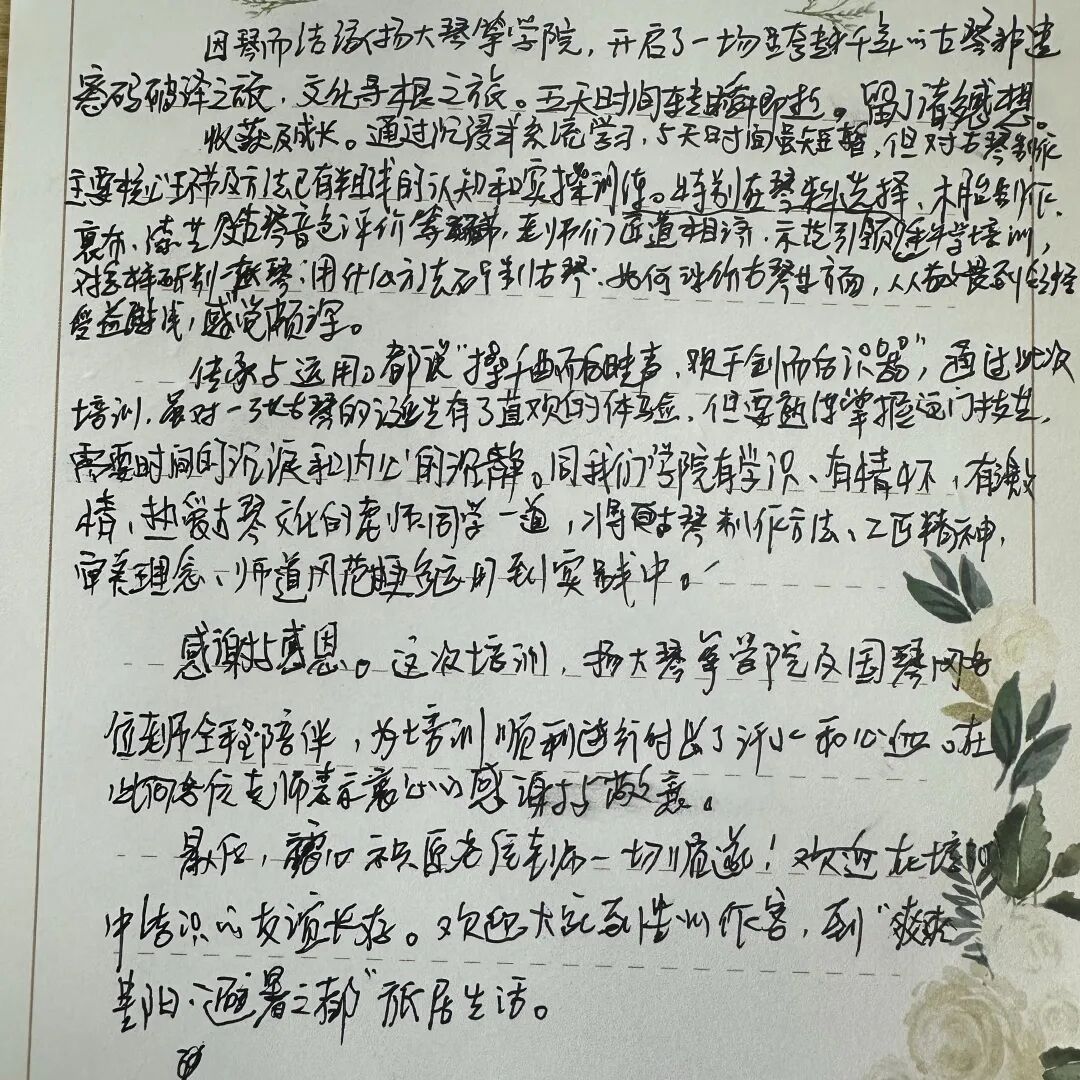 因琴而结缘扬大琴筝学院，开启了一场跨越千年的古琴非遗
密码破译之旅，文化寻根之旅。五天时间转瞬即逝。留了清感想。
收获及成长。通过沉浸式系统学习，5天时间虽短暂，但对古琴制作
主要核心环节及方法已有粗浅的认知和实操训练。特别在琴料选择、木胎制作、
裹布、漆艺及古琴音色评价等环节，老师们区道相济，示范引领
斫制古琴：用什么方法斫制古琴·如何评价古琴
受益匪浅，感觉颇深。
传承与运用。都说“操千曲而后晓声，观千剑而后识器”，通过此次
培训，虽对一张古琴的诞生有了直观的体验，但要熟练掌握这门技艺，
需要时间的沉淀和内心的沉静。同我们学院有学识、有情怀，有激
情，热爱古琴文化的老师同学一道，将古琴制作方法、工匠精神，
审美理念、师道风范运用到实践中。
感谢与感恩。这次培训，扬大琴筝学院及国琴网各
位老师全程陪伴，为培训顺利进行付出了汗水和心血。在
此向各位老师表示衷心的感谢与敬意。
最后，衷心祝愿各位老师一切顺遂！欢迎在培训
中结识的友谊长存。欢迎大家到贵州作客，到“爽爽
贵阳·避暑之都”旅居生活。